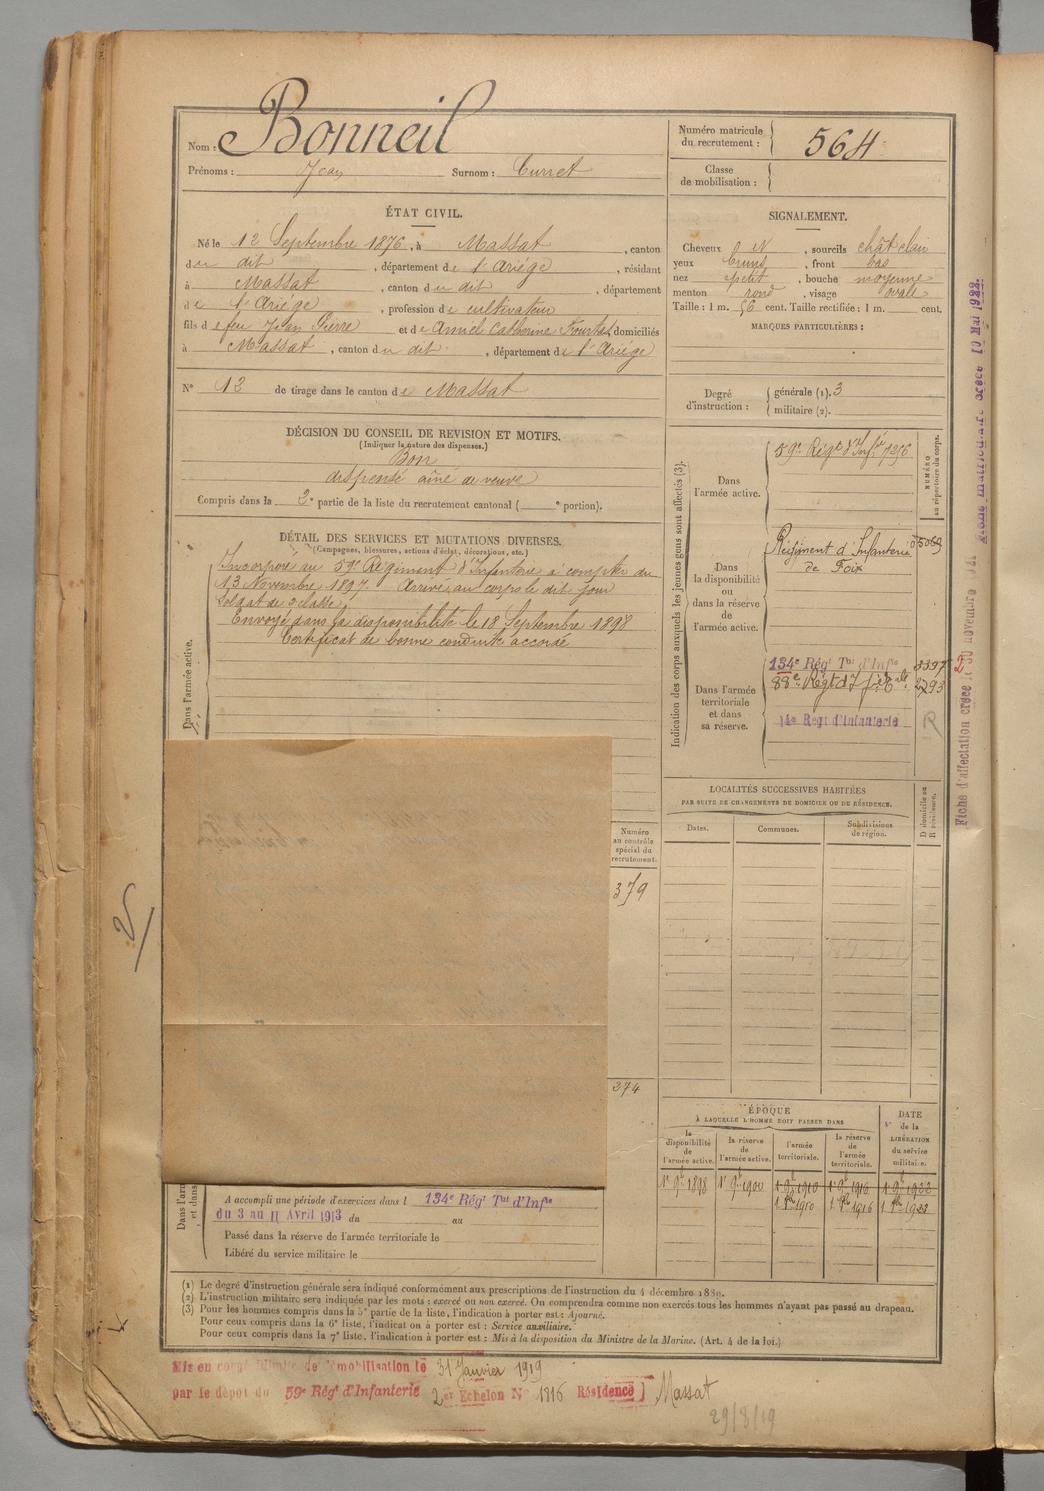 Nom : Bonneil
Prénoms : Jean Surnom : Curret
Numéro matricule
du recrutement : 564
Classe
de mobilisation :
ÉTAT CIVIL.
Né le 12 Septembre 1876, à Massat, canton
du dit, département de l'Ariège, résidant
à Massat, canton du dit, département
de l'Ariège, profession de cultivateur
fils de feu Jean Pierre et de Amiel Catherine domiciliés
à Massat, canton du dit, département de l'Ariège
N° 12 de tirage dans le canton de Massat
DÉCISION DU CONSEIL DE REVISION ET MOTIFS.
(Indiquer la nature des dispenses.)
Bon
dispensé aîné de veuve
Compris dans la 2e partie de la liste du recrutement cantonal ( e portion).
DÉTAIL DES SERVICES ET MUTATIONS DIVERSES.
(Campagnes, blessures, actions d'éclat, décorations, etc.)
Dans l'armée active.
Incorporé au 59e Régiment d'Infanterie à compter du
13 Novembre 1897. Arrivé au corps le dit jour
Soldat de 2e classe.
Envoyé dans la disponibilité le 18 Septembre 1898
Certificat de bonne conduite accordé
SIGNALEMENT.
Cheveux N, sourcils chât clair
yeux bruns, front bas
nez petit, bouche moyenne
menton rond, visage ovale
Taille : 1 m. 56 cent. Taille rectifiée : 1 m. cent.
MARQUES PARTICULIÈRES :
Degré
d'instruction :
générale (1). 3
militaire (2).
Indication des corps auxquels les jeunes gens sont affectés (3).
NUMÉRO
au répertoire du corps.
Dans
l'armée active.
59e Régt d'Infie 7256
Dans
la disponibilité
ou
dans la réserve
de
l'armée active.
Régiment d'Infanterie 05069
de Foix
Dans l'armée
territoriale
et dans
sa réserve.
134e Régt Tal d'Infie 3397
88e Régt d'Infie Tale 2293
14e Régt d'Infanterie
R
2
Fiche d'affectation créée le 30 novembre 1921
Fiche matriculaire créée 10 Mai 1922
LOCALITÉS SUCCESSIVES HABITÉES
PAR SUITE DE CHANGEMENTS DE DOMICILE OU DE RÉSIDENCE.
Dates. Communes. Subdivisions
de région.
D domicile ou
R résidence.
Numéro
au contrôle
spécial du
recrutement.
379
374
ÉPOQUE
À LAQUELLE L'HOMME DOIT PASSER DANS
DATE
de la
LIBÉRATION
du service
militaire.
la
disponibilité
de
l'armée active.
la réserve
de
l'armée active.
l'armée
territoriale.
la réserve
de
l'armée
territoriale.
1er 9bre 1898 1er 9bre 1900 1er 9bre 1910 1er 9bre 1916 1er 9bre 1922
A accompli une période d'exercices dans l 134e Régt Tal d'Infie
du 3 au 11 Avril 1913 du au
Passé dans la réserve de l'armée territoriale le
Libéré du service militaire le
(1) Le degré d'instruction générale sera indiqué conformément aux prescriptions de l'instruction du 4 décembre 1889.
(2) L'instruction militaire sera indiquée par les mots : exercé ou non exercé. On comprendra comme non exercés tous les hommes n'ayant pas passé au drapeau.
(3) Pour les hommes compris dans la 5e partie de la liste, l'indication à porter est : Ajourné.
Pour ceux compris dans la 6e liste, l'indication à porter est : Service auxiliaire.
Pour ceux compris dans la 7e liste, l'indication à porter est : Mis à la disposition du Ministre de la Marine. (Art. 4 de la loi.)
Mis en congé illimité de démobilisation le 31 Janvier 1919
par le dépôt du 59e Régt d'Infanterie 2e Echelon N° 1816 Résidence Massat
29/8/19